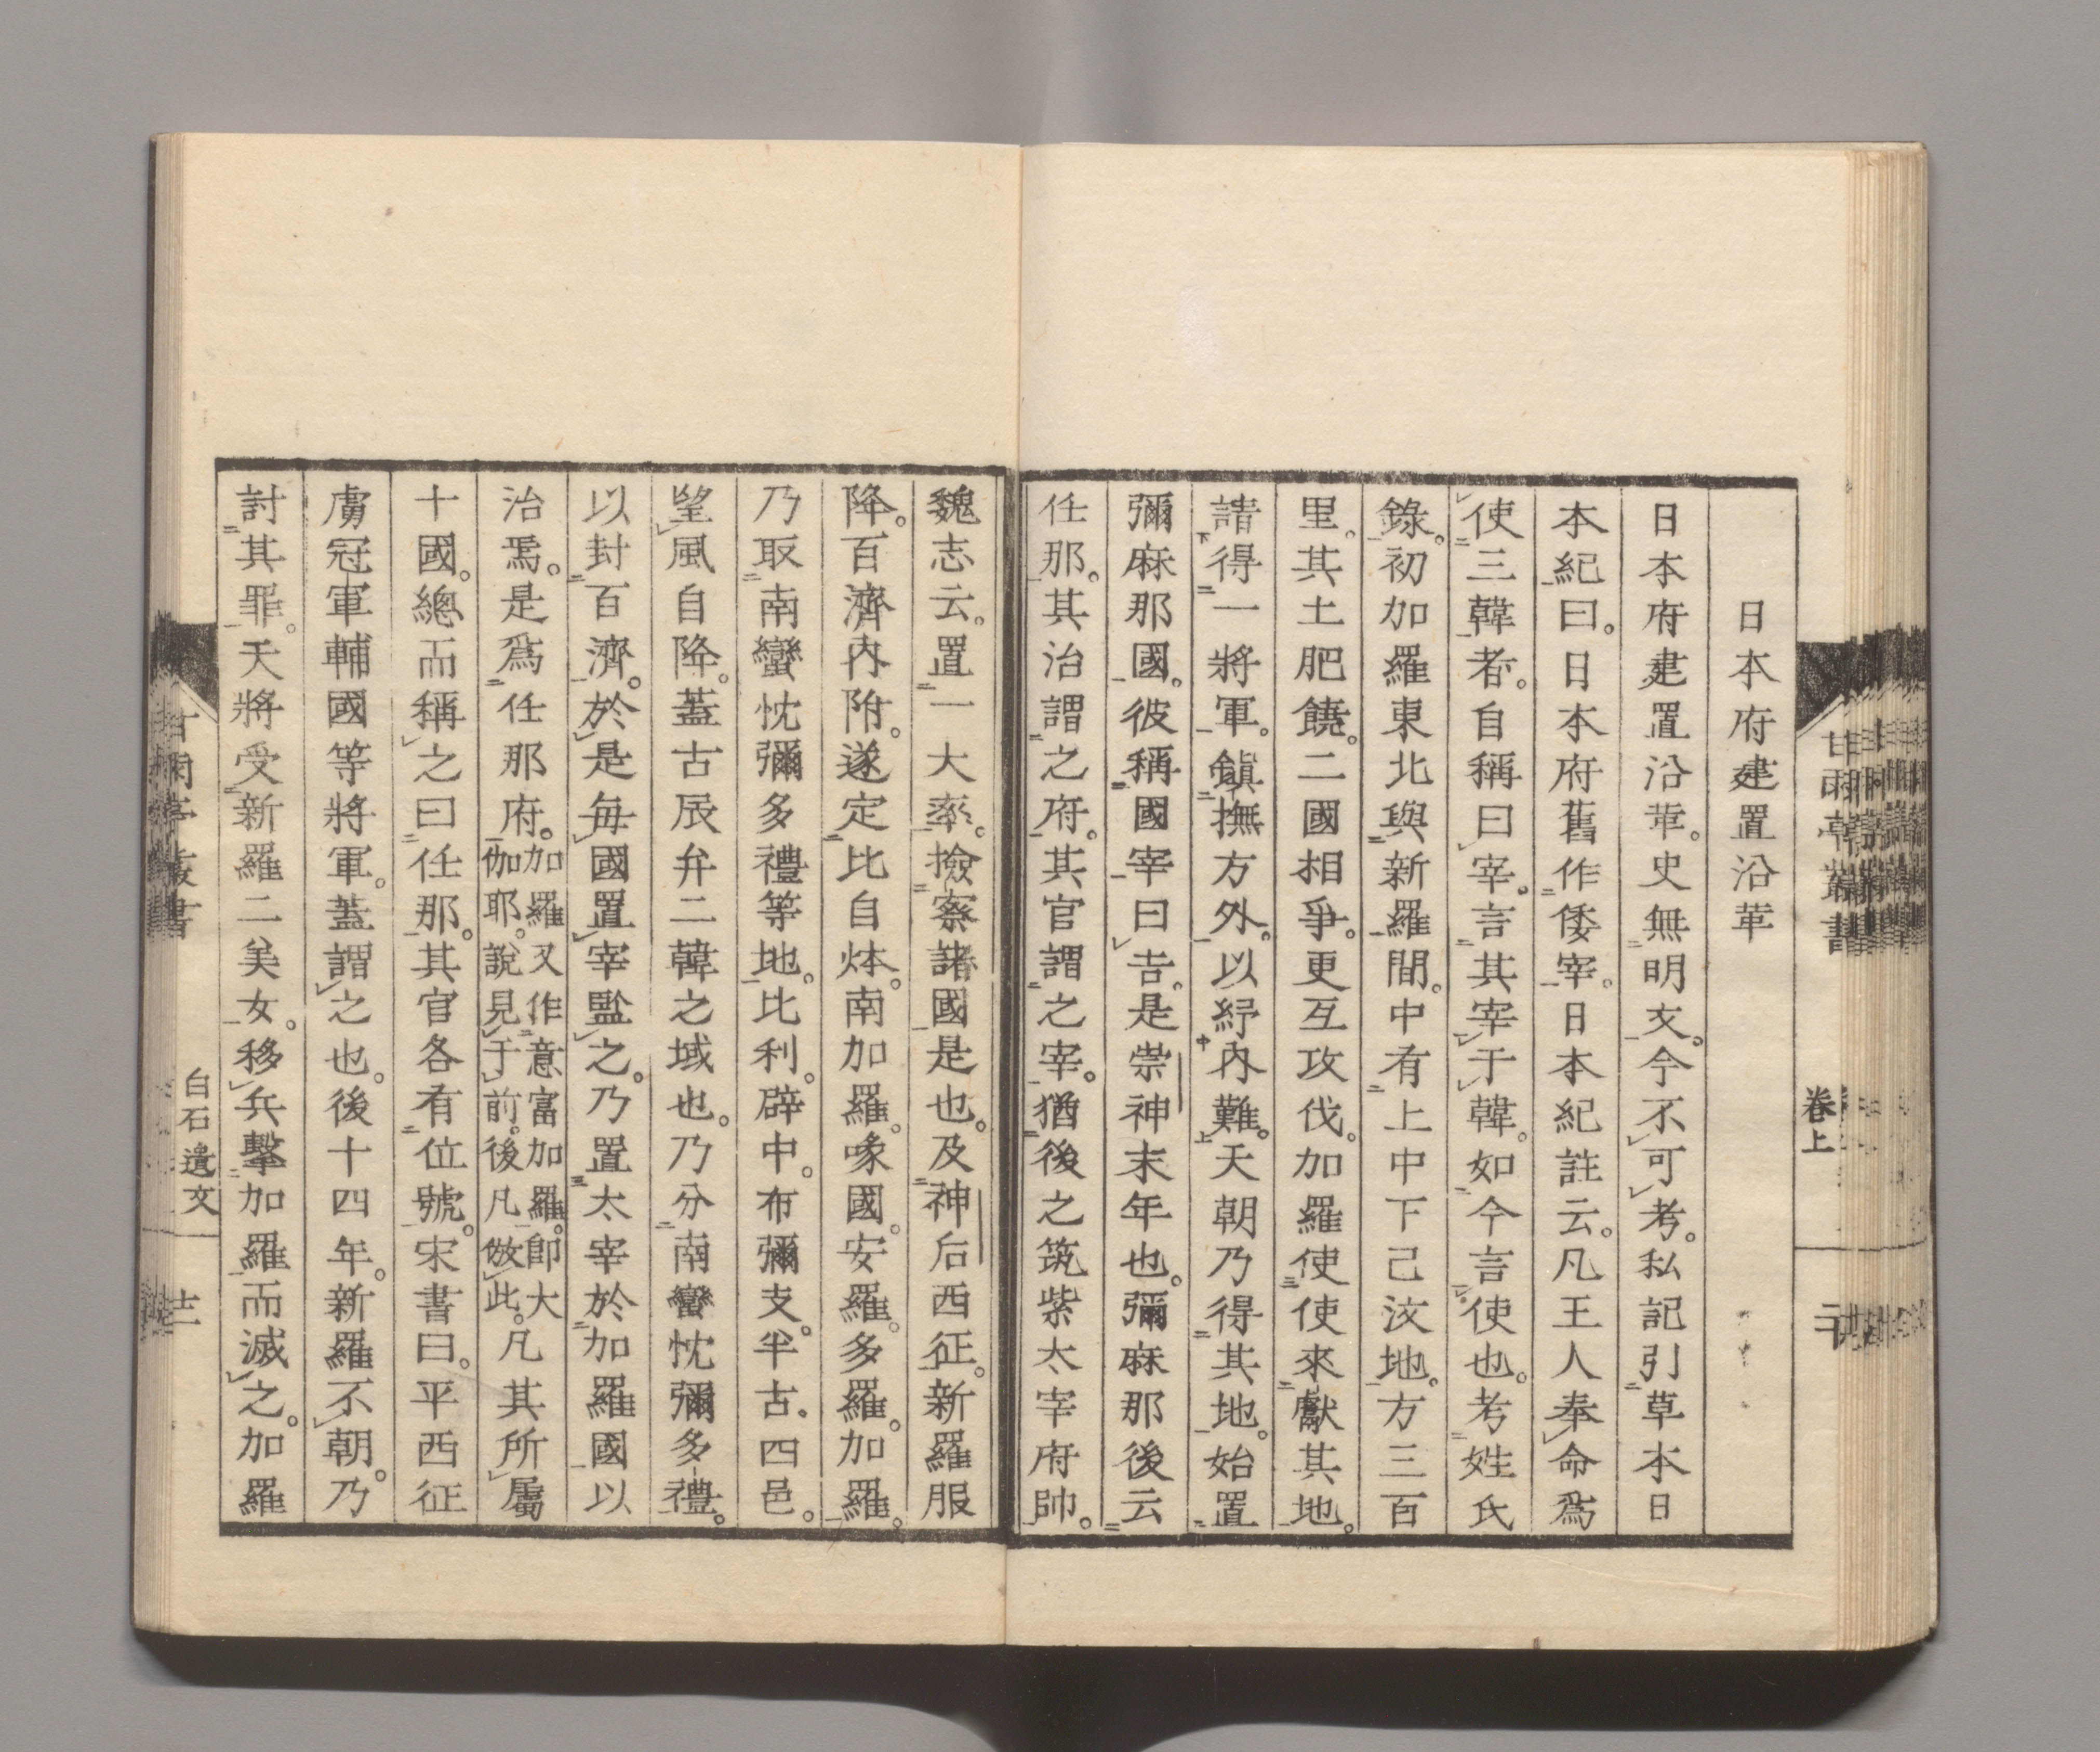 日本府建置沿革
日本府建置沿革。史無明文。今不可考。私記引草本日
本紀曰。日本府舊作倭宰。日本紀註云。凡王人奉命爲
使三韓者。自稱曰宰。言其宰于韓。如今言使也。考姓氏
錄。初加羅東北與新羅間。中有上中下己汶地。方三百
里。其土肥饒。二國相爭。更互攻伐。加羅使使來獻其地。
請得一將軍。鎭撫方外。以紓內難。天朝乃得其地。始置
彌麻那國。彼稱國宰曰吉。是崇神末年也。彌麻那後云
任那。其治謂之府。其官謂之宰。猶後之筑紫太宰府帥。
魏志云。置一大率。撿察諸國是也。及神后西征。新羅服
降。百濟內附。遂定比自㶱。南加羅。㖨國。安羅。多羅。加羅。
乃取南蠻忱彌多禮等地。比利。辟中。布彌支。半古。四邑。
望風自降。蓋古辰弁二韓之域也。乃分南蠻忱彌多禮。
以封百濟。於是每國置宰監之。乃置太宰於加羅國以
治焉。是爲任那府。加羅又作意富加羅。卽大
伽耶。說見于前。後凡倣此。凡其所屬
十國。總而稱之曰任那。其官各有位號。宋書曰。平西征
虜冠軍輔國等將軍。蓋謂之也。後十四年。新羅不朝。乃
討其罪。天將受新羅二美女。移兵擊加羅而滅之。加羅
甘雨亭叢書
卷上
白石遺文